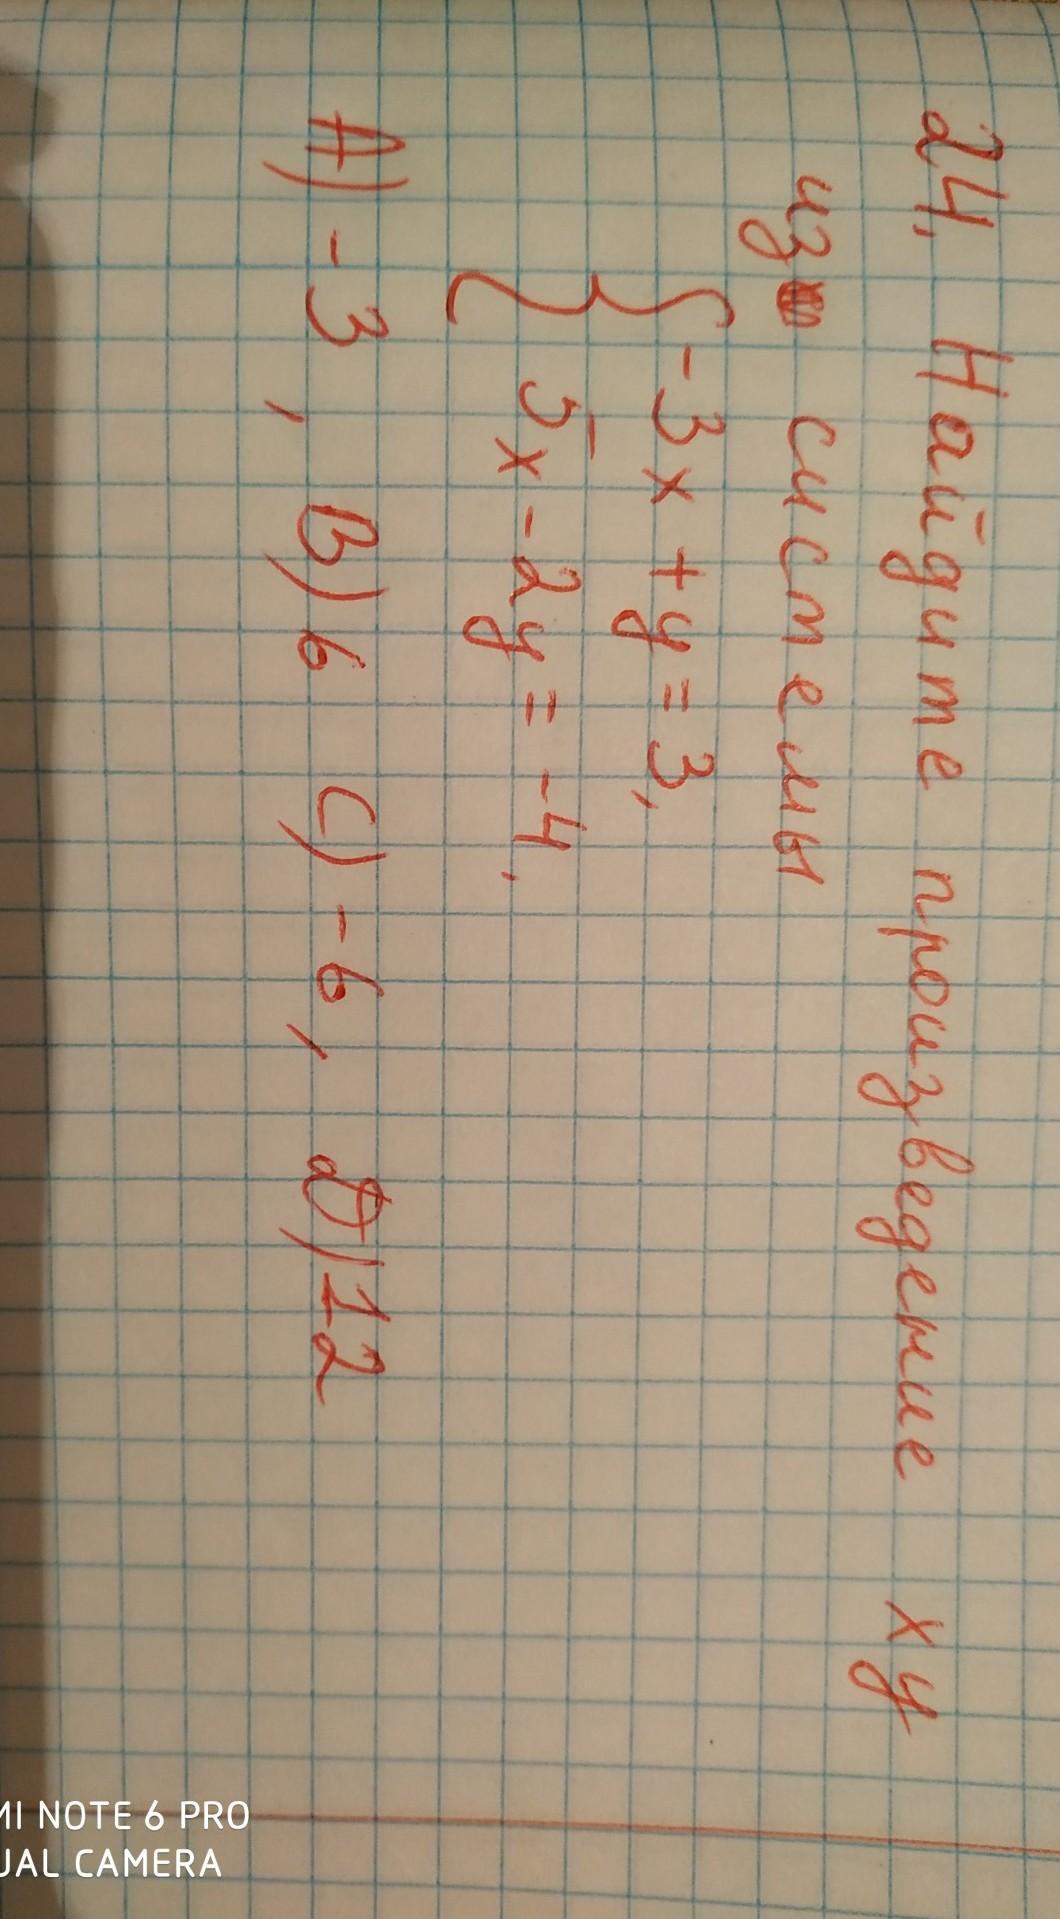 24. Найдите произведение xy
из системы
{ -3x + y = 3,
5x - 2y = -4,
A) -3, B) 6 C) -6, D) 12
MI NOTE 6 PRO
UAL CAMERA